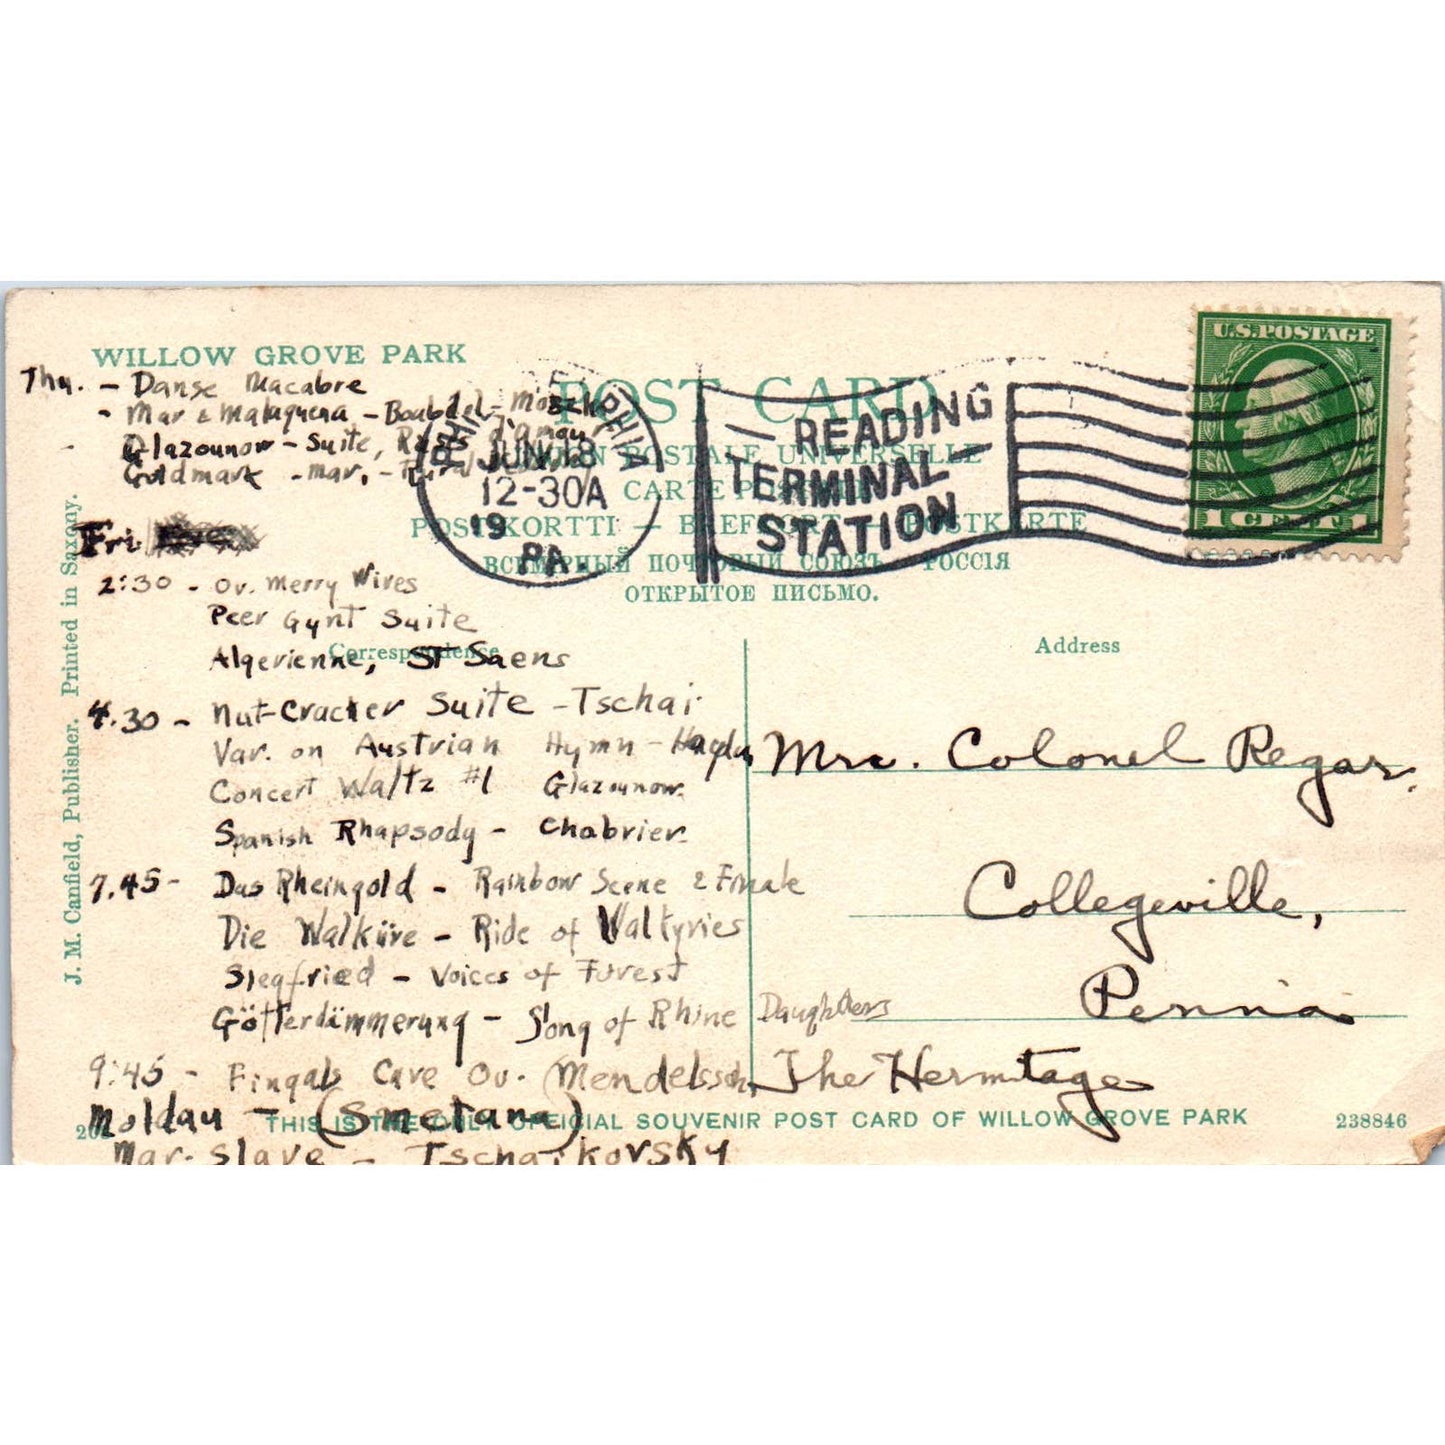 WILLOW GROVE PARK
POST CARD
UNION POSTALE UNIVERSELLE
CARTE POSTALE
POSTIKORTTI — BREFKORT — POSTKARTE
ВСЕМІРНЫЙ ПОЧТОВЫЙ СОЮЗЪ РОССІЯ
ОТКРЫТОЕ ПИСЬМО.
U.S. POSTAGE
1 CENT 1
PHILADELPHIA
JUN 18
12-30A
19
PA
READING
TERMINAL
STATION
Thu. - Danse Macabre
- Mar & Malaguena - Boabdel - Moszk
Glazounow - Suite, Ruses d'amour
Goldmark - mar. - Rural
Fri. Eve.
2:30 - Ov. Merry Wives
Peer Gynt Suite
Correspondence
Algerienne, St Saens
4.30 - Nut-Cracker Suite - Tschai
Var. on Austrian Hymn - Haydn
Concert Waltz #1 Glazounow.
Spanish Rhapsody - Chabrier
7.45 - Das Rheingold - Rainbow Scene & Finale
Die Walküre - Ride of Valkyries
Siegfried - Voices of Forest
Götterdämmerung - Song of Rhine Daughters
9:45 - Fingals Cave Ov. Mendelssoh
Moldau - (Smetana)
Mar. Slave - Tschaikovsky
Address
Mrs. Colonel Regar.
Collegeville,
Penn'a
The Hermitage
THIS IS THE ONLY OFFICIAL SOUVENIR POST CARD OF WILLOW GROVE PARK
238846
J. M. Canfield, Publisher. Printed in Saxony.